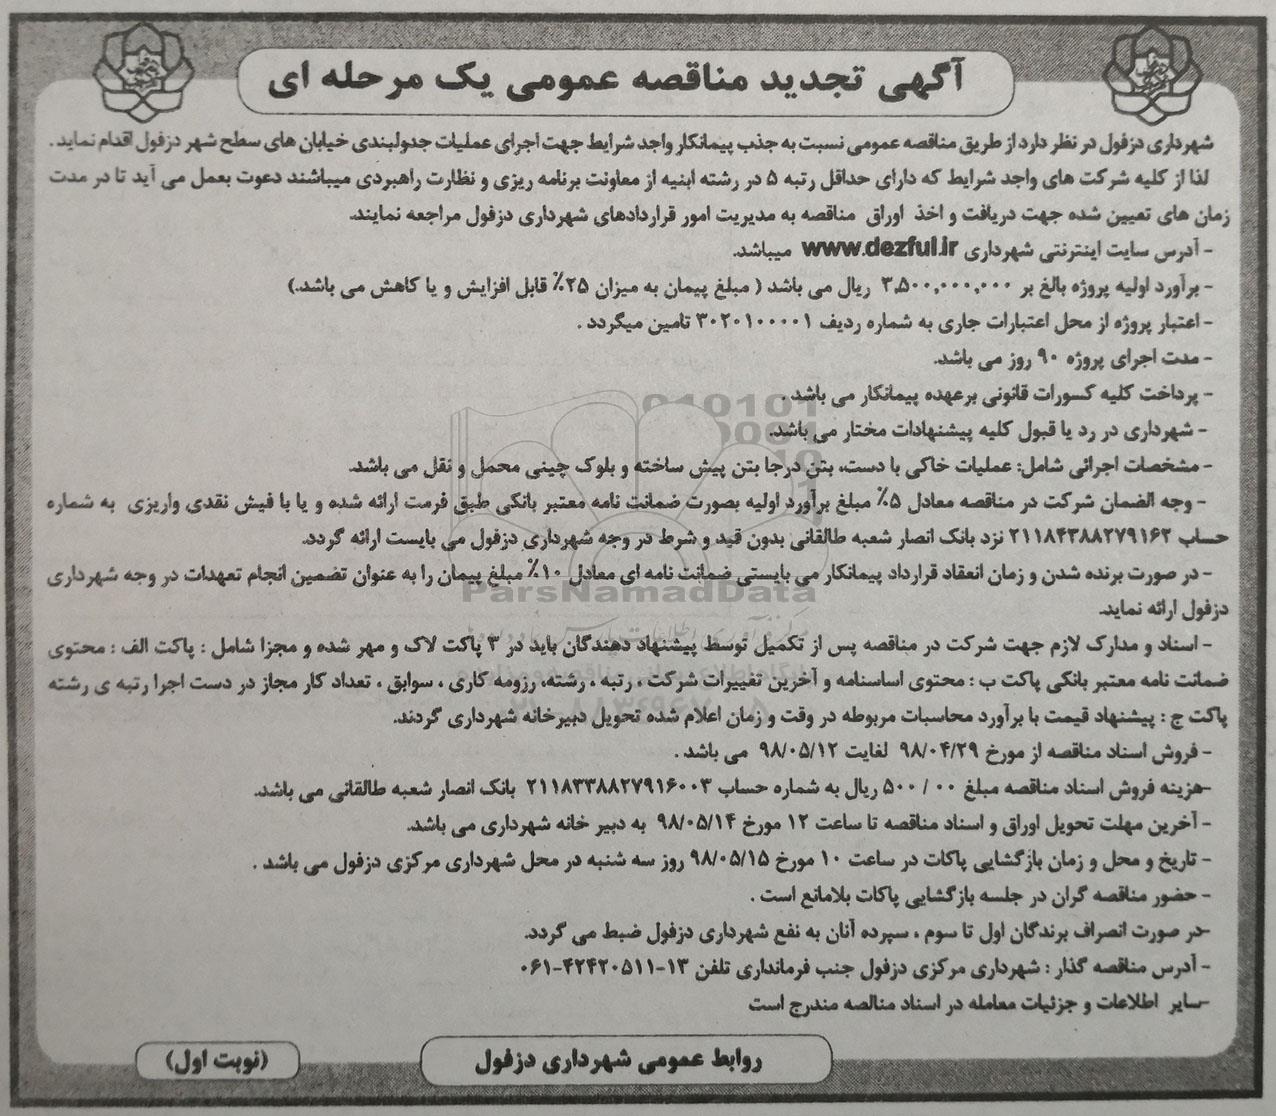 آگهی تجدید مناقصه عمومی یک مرحله ای
شهرداری دزفول در نظر دارد از طریق مناقصه عمومی نسبت به جذب پیمانکار واجد شرایط جهت اجرای عملیات جدولبندی خیابان های سطح شهر دزفول اقدام نماید .
لذا از کلیه شرکت های واجد شرایط که دارای حداقل رتبه ۵ در رشته ابنیه از معاونت برنامه ریزی و نظارت راهبردی میباشند دعوت بعمل می آید تا در مدت
زمان های تعیین شده جهت دریافت و اخذ اوراق مناقصه به مدیریت امور قراردادهای شهرداری دزفول مراجعه نمایند.
- آدرس سایت اینترنتی شهرداری www.dezful.ir میباشد.
- برآورد اولیه پروژه بالغ بر ۳,۵۰۰,۰۰۰,۰۰۰ ریال می باشد ( مبلغ پیمان به میزان ۲۵٪ قابل افزایش و یا کاهش می باشد.)
- اعتبار پروژه از محل اعتبارات جاری به شماره ردیف ۳۰۲۰۱۰۰۰۰۱ تامین میگردد .
- مدت اجرای پروژه ۹۰ روز می باشد.
- پرداخت کلیه کسورات قانونی برعهده پیمانکار می باشد .
- شهرداری در رد یا قبول کلیه پیشنهادات مختار می باشد.
- مشخصات اجرائی شامل: عملیات خاکی با دست، بتن درجا بتن پیش ساخته و بلوک چینی محمل و نقل می باشد.
- وجه الضمان شرکت در مناقصه معادل ۵٪ مبلغ برآورد اولیه بصورت ضمانت نامه معتبر بانکی طبق فرمت ارائه شده و یا با فیش نقدی واریزی به شماره
حساب ۲۱۱۸۴۳۸۸۲۷۹۱۶۲ نزد بانک انصار شعبه طالقانی بدون قید و شرط در وجه شهرداری دزفول می بایست ارائه گردد.
- در صورت برنده شدن و زمان انعقاد قرارداد پیمانکار می بایستی ضمانت نامه ای معادل ۱۰٪ مبلغ پیمان را به عنوان تضمین انجام تعهدات در وجه شهرداری
دزفول ارائه نماید.
ParsNamadData
- اسناد و مدارک لازم جهت شرکت در مناقصه پس از تکمیل توسط پیشنهاد دهندگان باید در ۳ پاکت لاک و مهر شده و مجزا شامل : پاکت الف : محتوی
ضمانت نامه معتبر بانکی پاکت ب : محتوی اساسنامه و آخرین تغییرات شرکت ، رتبه ، رشته، رزومه کاری ، سوابق ، تعداد کار مجاز در دست اجرا رتبه ی رشته
پاکت ج : پیشنهاد قیمت با برآورد محاسبات مربوطه در وقت و زمان اعلام شده تحویل دبیرخانه شهرداری گردند.
- فروش اسناد مناقصه از مورخ ۹۸/۰۴/۲۹ لغایت ۹۸/۰۵/۱۲ می باشد .
-هزینه فروش اسناد مناقصه مبلغ ۰۰ / ۵۰۰ ریال به شماره حساب ۲۱۱۸۳۳۸۸۲۷۹۱۶۰۰۳ بانک انصار شعبه طالقانی می باشد.
- آخرین مهلت تحویل اوراق و اسناد مناقصه تا ساعت ۱۲ مورخ ۹۸/۰۵/۱۴ به دبیر خانه شهرداری می باشد.
- تاریخ و محل و زمان بازگشایی پاکات در ساعت ۱۰ مورخ ۹۸/۰۵/۱۵ روز سه شنبه در محل شهرداری مرکزی دزفول می باشد .
- حضور مناقصه گران در جلسه بازگشایی پاکات بلامانع است .
-در صورت انصراف برندگان اول تا سوم ، سپرده آنان به نفع شهرداری دزفول ضبط می گردد.
- آدرس مناقصه گذار : شهرداری مرکزی دزفول جنب فرمانداری تلفن ۱۳-۰۶۱-۴۲۴۲۰۵۱۱
-سایر اطلاعات و جزئیات معامله در اسناد مناقصه مندرج است
روابط عمومی شهرداری دزفول
(نوبت اول)